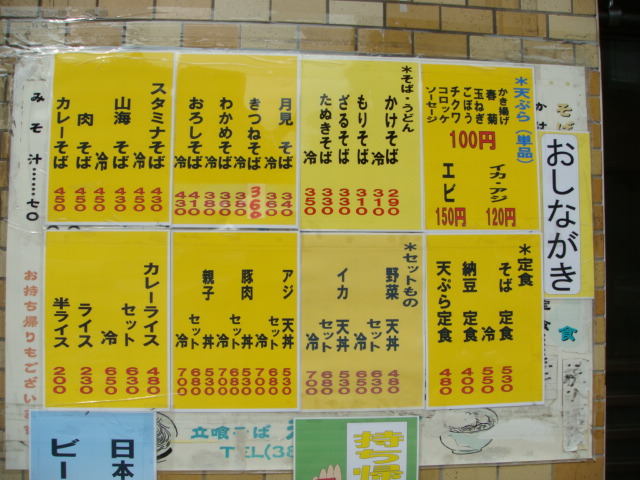 おしながき
そば
＊天ぷら（単品）
かき揚げ
春菊
玉ねぎ
ごぼう
チクワ
コロッケ
ソーセージ
100円
イカ・アジ
120円
エビ
150円
＊そば・うどん
かけそば 290
冷 310
もりそば 310
ざるそば 330
たぬきそば 330
冷 350
月見 そば 340
冷 360
きつねそば 360
冷 380
わかめそば 350
冷 380
おろしそば 410
冷 430
スタミナそば 430
冷 450
山海 そば 430
冷 450
肉 そば 450
カレーそば 450
みそ汁……70
＊定食
そば 定食 530
冷 550
納豆 定食 400
天ぷら定食 480
＊セットもの
野菜 天丼 480
セット 630
冷 650
イカ 天丼 530
セット 680
冷 700
アジ 天丼 530
セット 680
冷 700
豚肉 丼 530
セット 680
冷 700
親子 丼 530
セット 680
冷 700
カレーライス 480
セット 630
冷 650
ライス 230
半ライス 200
お持ち帰りもござい
食
立喰そば
TEL(38
日本
ビー
持ち帰